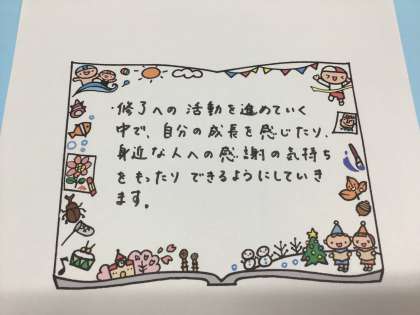 ・修了への活動を進めていく
中で、自分の成長を感じたり、
身近な人への感謝の気持ち
をもったりできるようにしていき
ます。